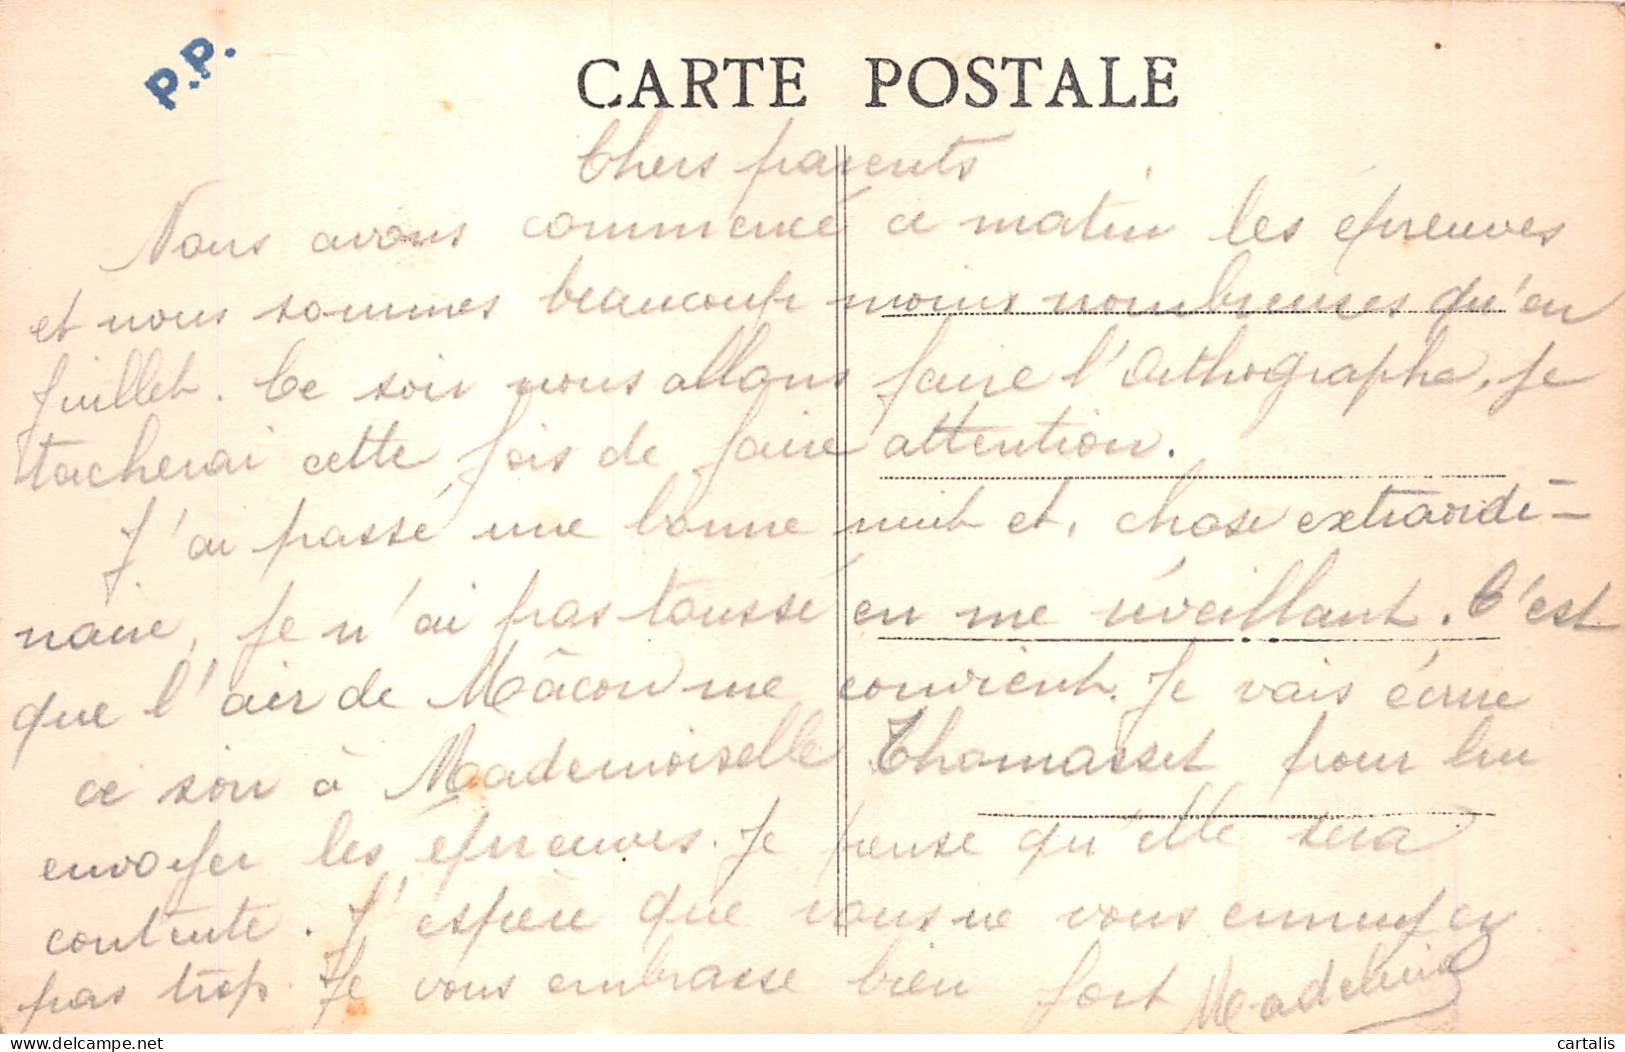 P.P.
CARTE POSTALE
Chers parents
Nous avons commencé ce matin les épreuves
et nous sommes beaucoup moins nombreuses qu'en
juillet. Ce soir nous allons faire l'orthographe, je
tacherai cette fois de faire attention.
J'ai passé une bonne nuit et, chose extraordi-
naire, je n'ai pas toussé en me réveillant. C'est
que l'air de Mâcon me convient. Je vais écrire
ce soir à Mademoiselle Thomasset pour lui
envoyer les épreuves. Je pense qu'elle sera
contente. J'espère que vous ne vous ennuyez
pas trop. Je vous embrasse bien fort Madeleine
cartalis